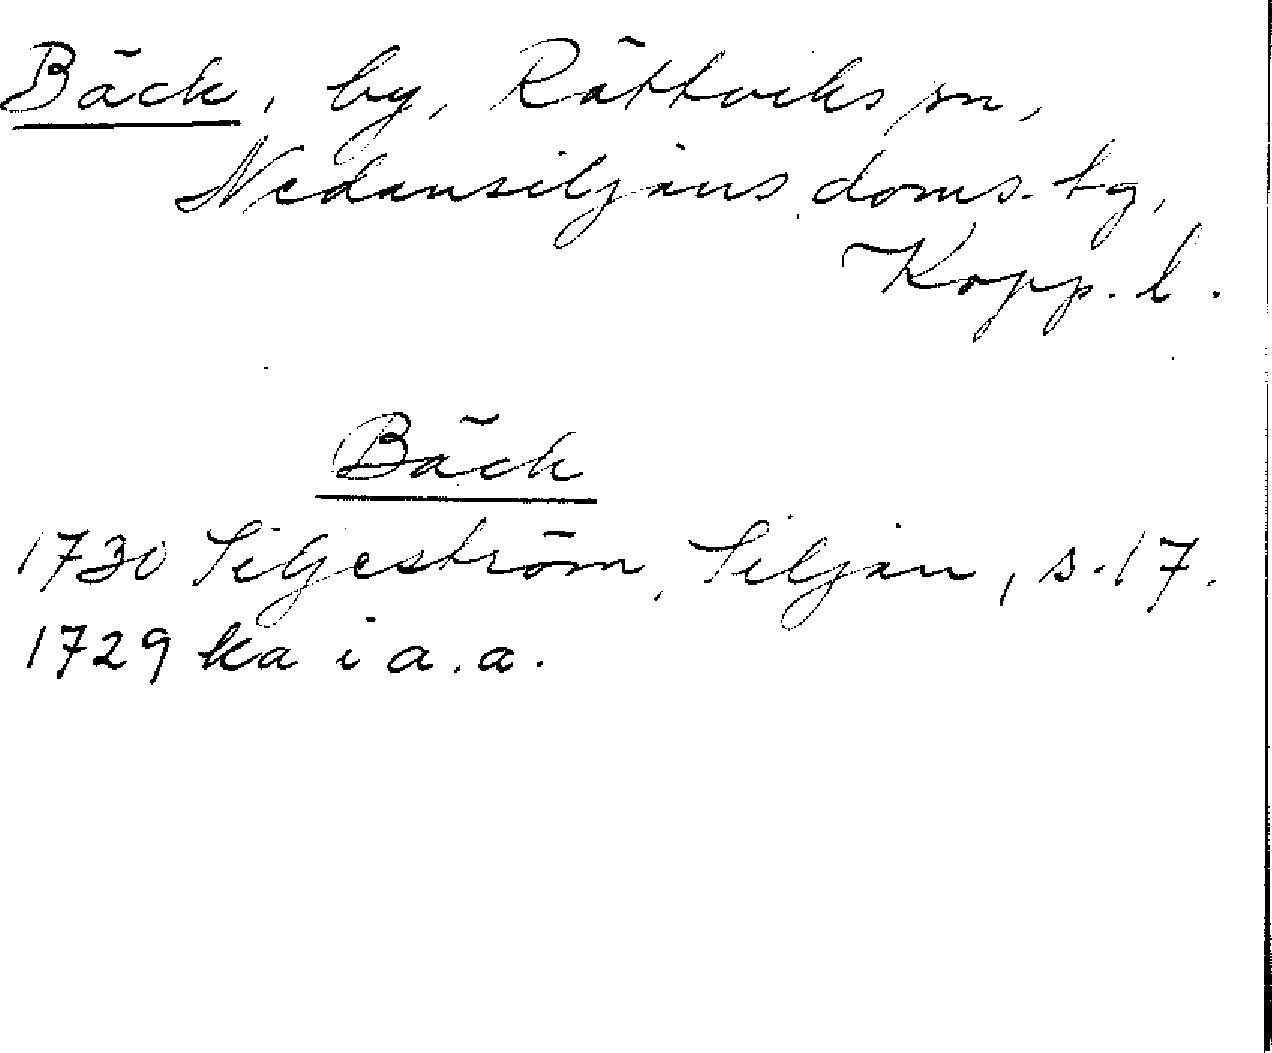 Bäck, by, Rättviks sn,
Nedansiljans doms. tg,
Kopp. l.
Bäck
1730 Siljeström, Siljan, s. 17.
1729 ka i a. a.